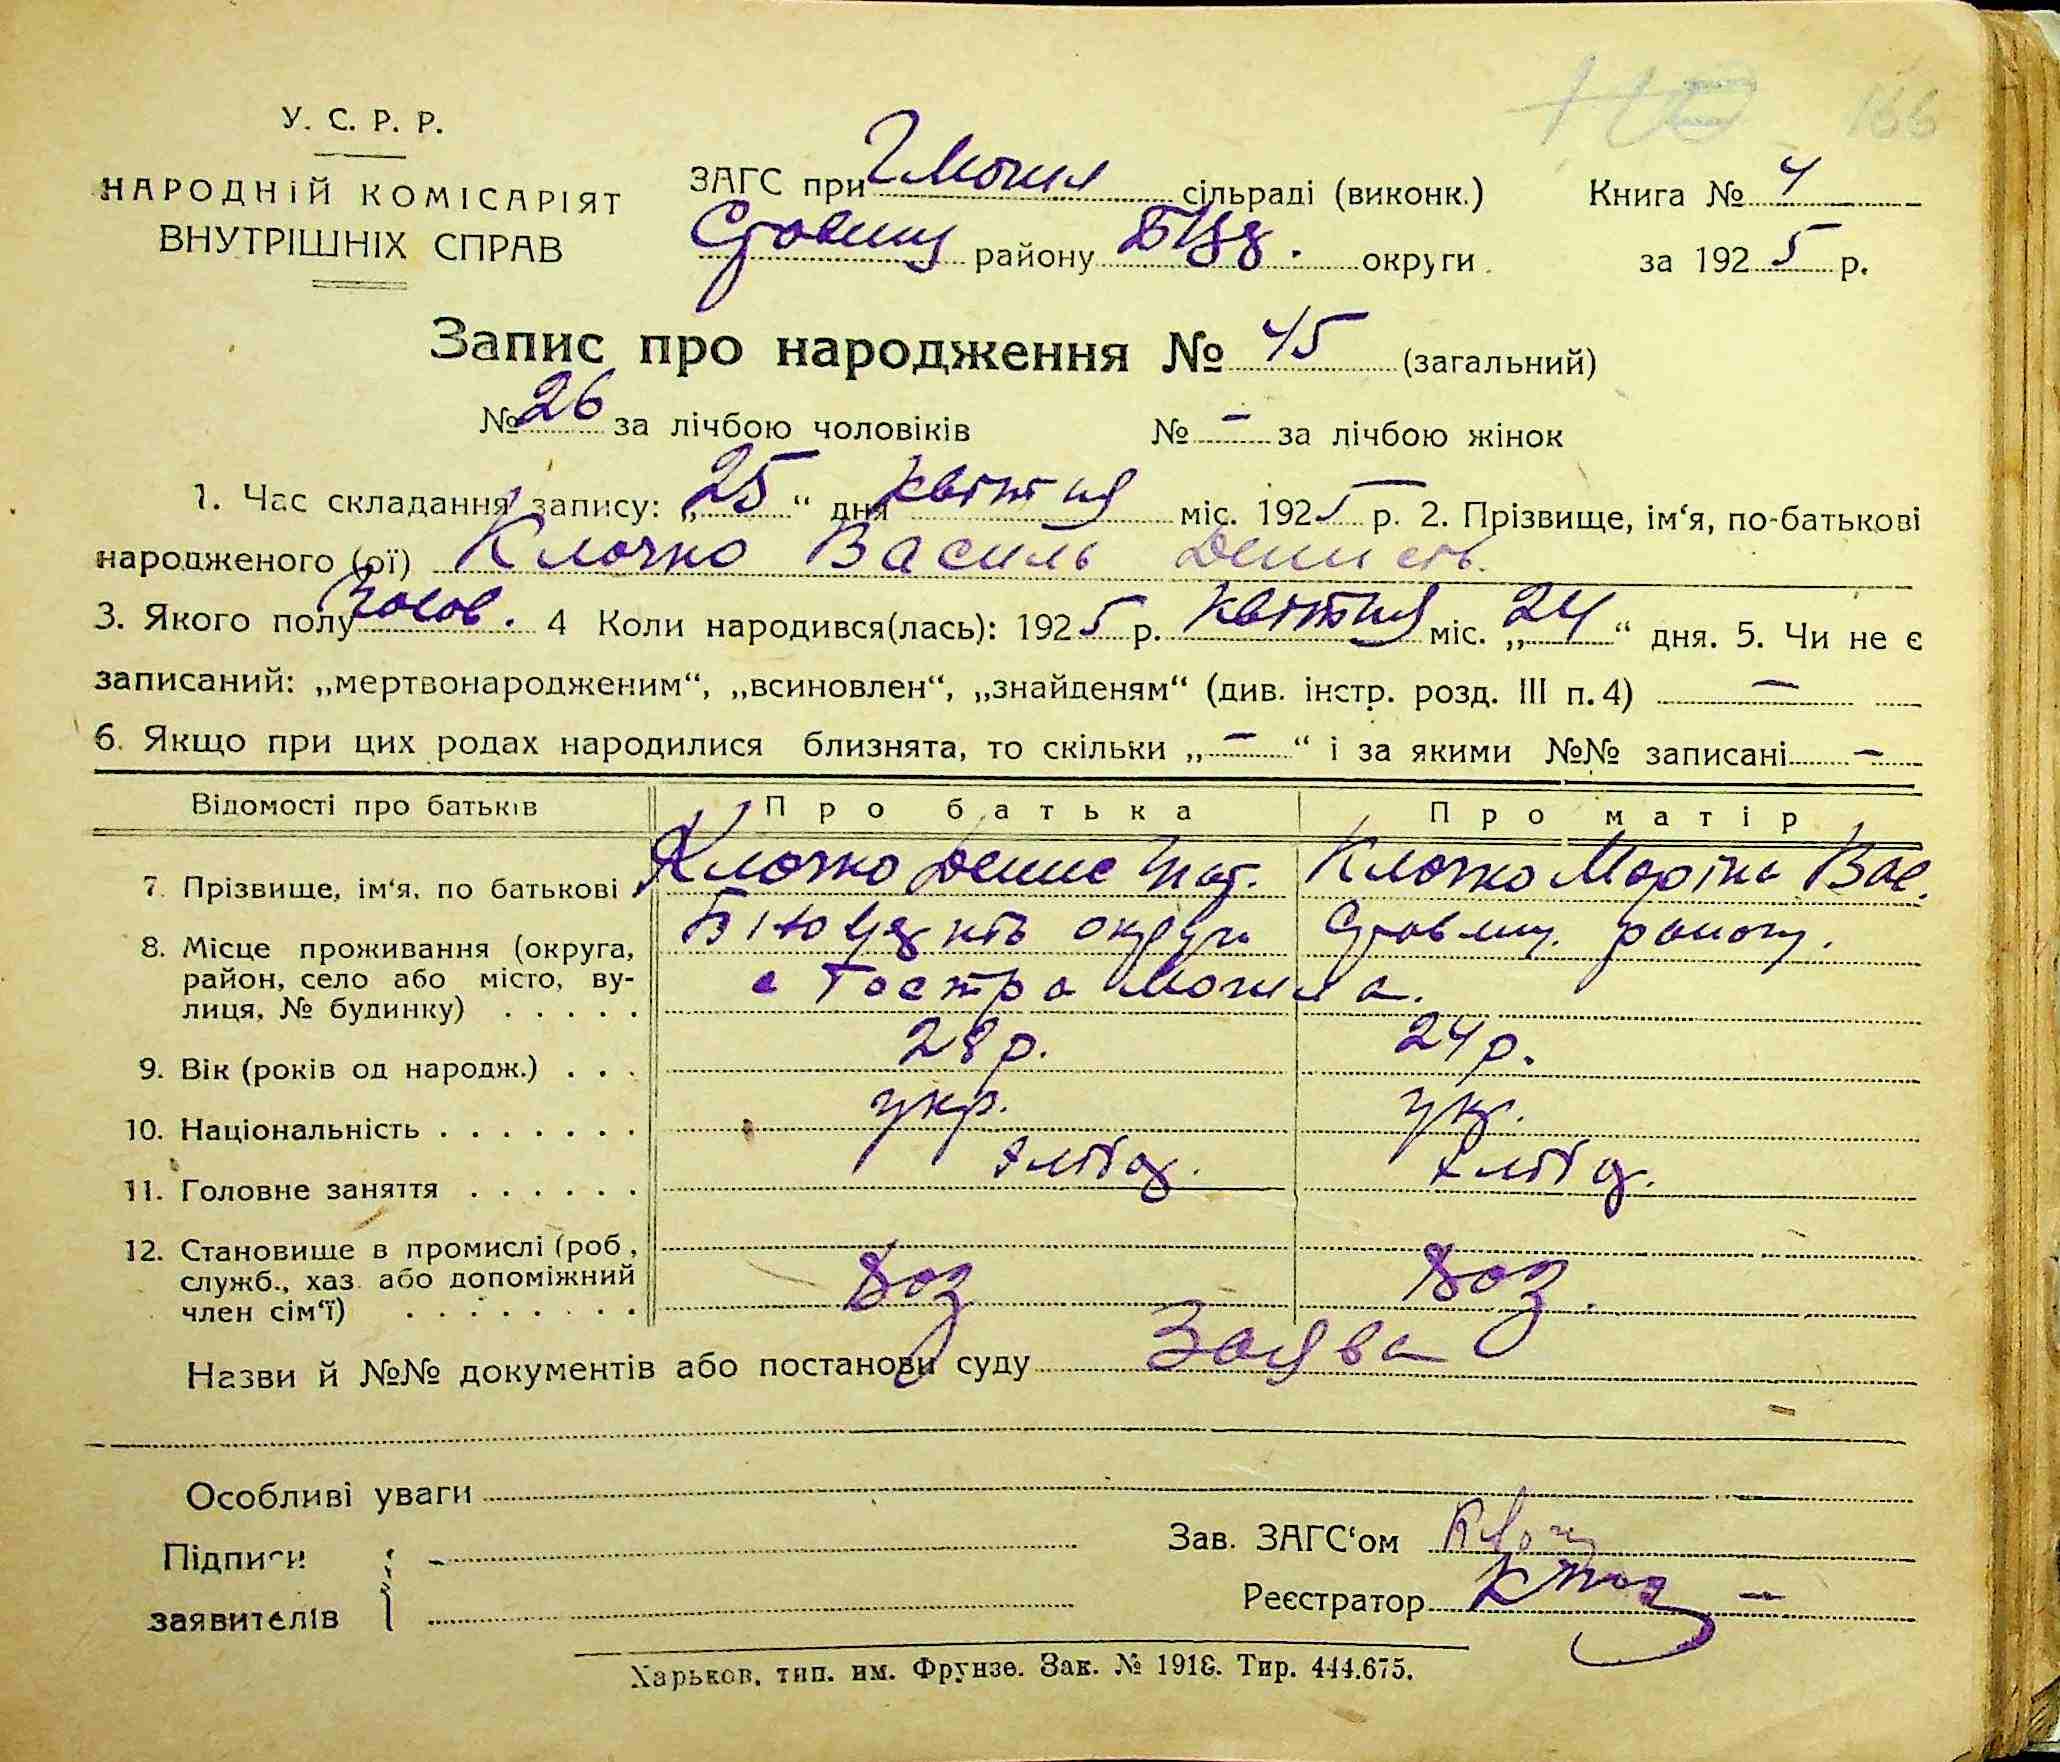 166
У. С. Р. Р.
НАРОДНІЙ КОМІСАРІЯТ
ВНУТРІШНІХ СПРАВ
ЗАГС при Гмогил сільраді (виконк.)
Книга № 4
Ставищ району БЦд. округи.
за 1925 р.
Запис про народження № 45 (загальний)
№ 26 за лічбою чоловіків № – за лічбою жінок
1. Час складання запису: „25“ дня квітня міс. 1925 р. 2. Прізвище, ім‘я, по-батькові
народженого (ої) Клочко Василь Денисів.
3. Якого полу чолов. 4 Коли народився(лась): 1925 р. квітня міс. „24“ дня. 5. Чи не є
записаний: „мертвонародженим“, „всиновлен“, „знайденям“ (див. інстр. розд. III п. 4) –
6. Якщо при цих родах народилися близнята, то скільки „–“ і за якими №№ записані –
Відомості про батьків Про батька Про матір
7. Прізвище, ім‘я, по батькові Клочко Денис Клочко Маріна Вас.
8. Місце проживання (округа, Білоцерків округи Ставищ. району.
район, село або місто, ву- с Гостра Могила.
лиця, № будинку) . . . . .
9. Вік (років од народж.) . . . 28 р. 24 р.
10. Національність . . . . . . . укр. укр.
11. Головне заняття . . . . . . хлібор. хлібор.
12. Становище в промислі (роб,
служб., хаз. або допоміжний хоз хоз.
член сім‘ї) . . . . . . . .
Назви й №№ документів або постанови суду Заява
Особливі уваги
Підписи
заявителів
Зав. ЗАГС‘ом
Реєстратор
Харьков, тип. им. Фрунзе. Зак. № 1918. Тир. 444.675.